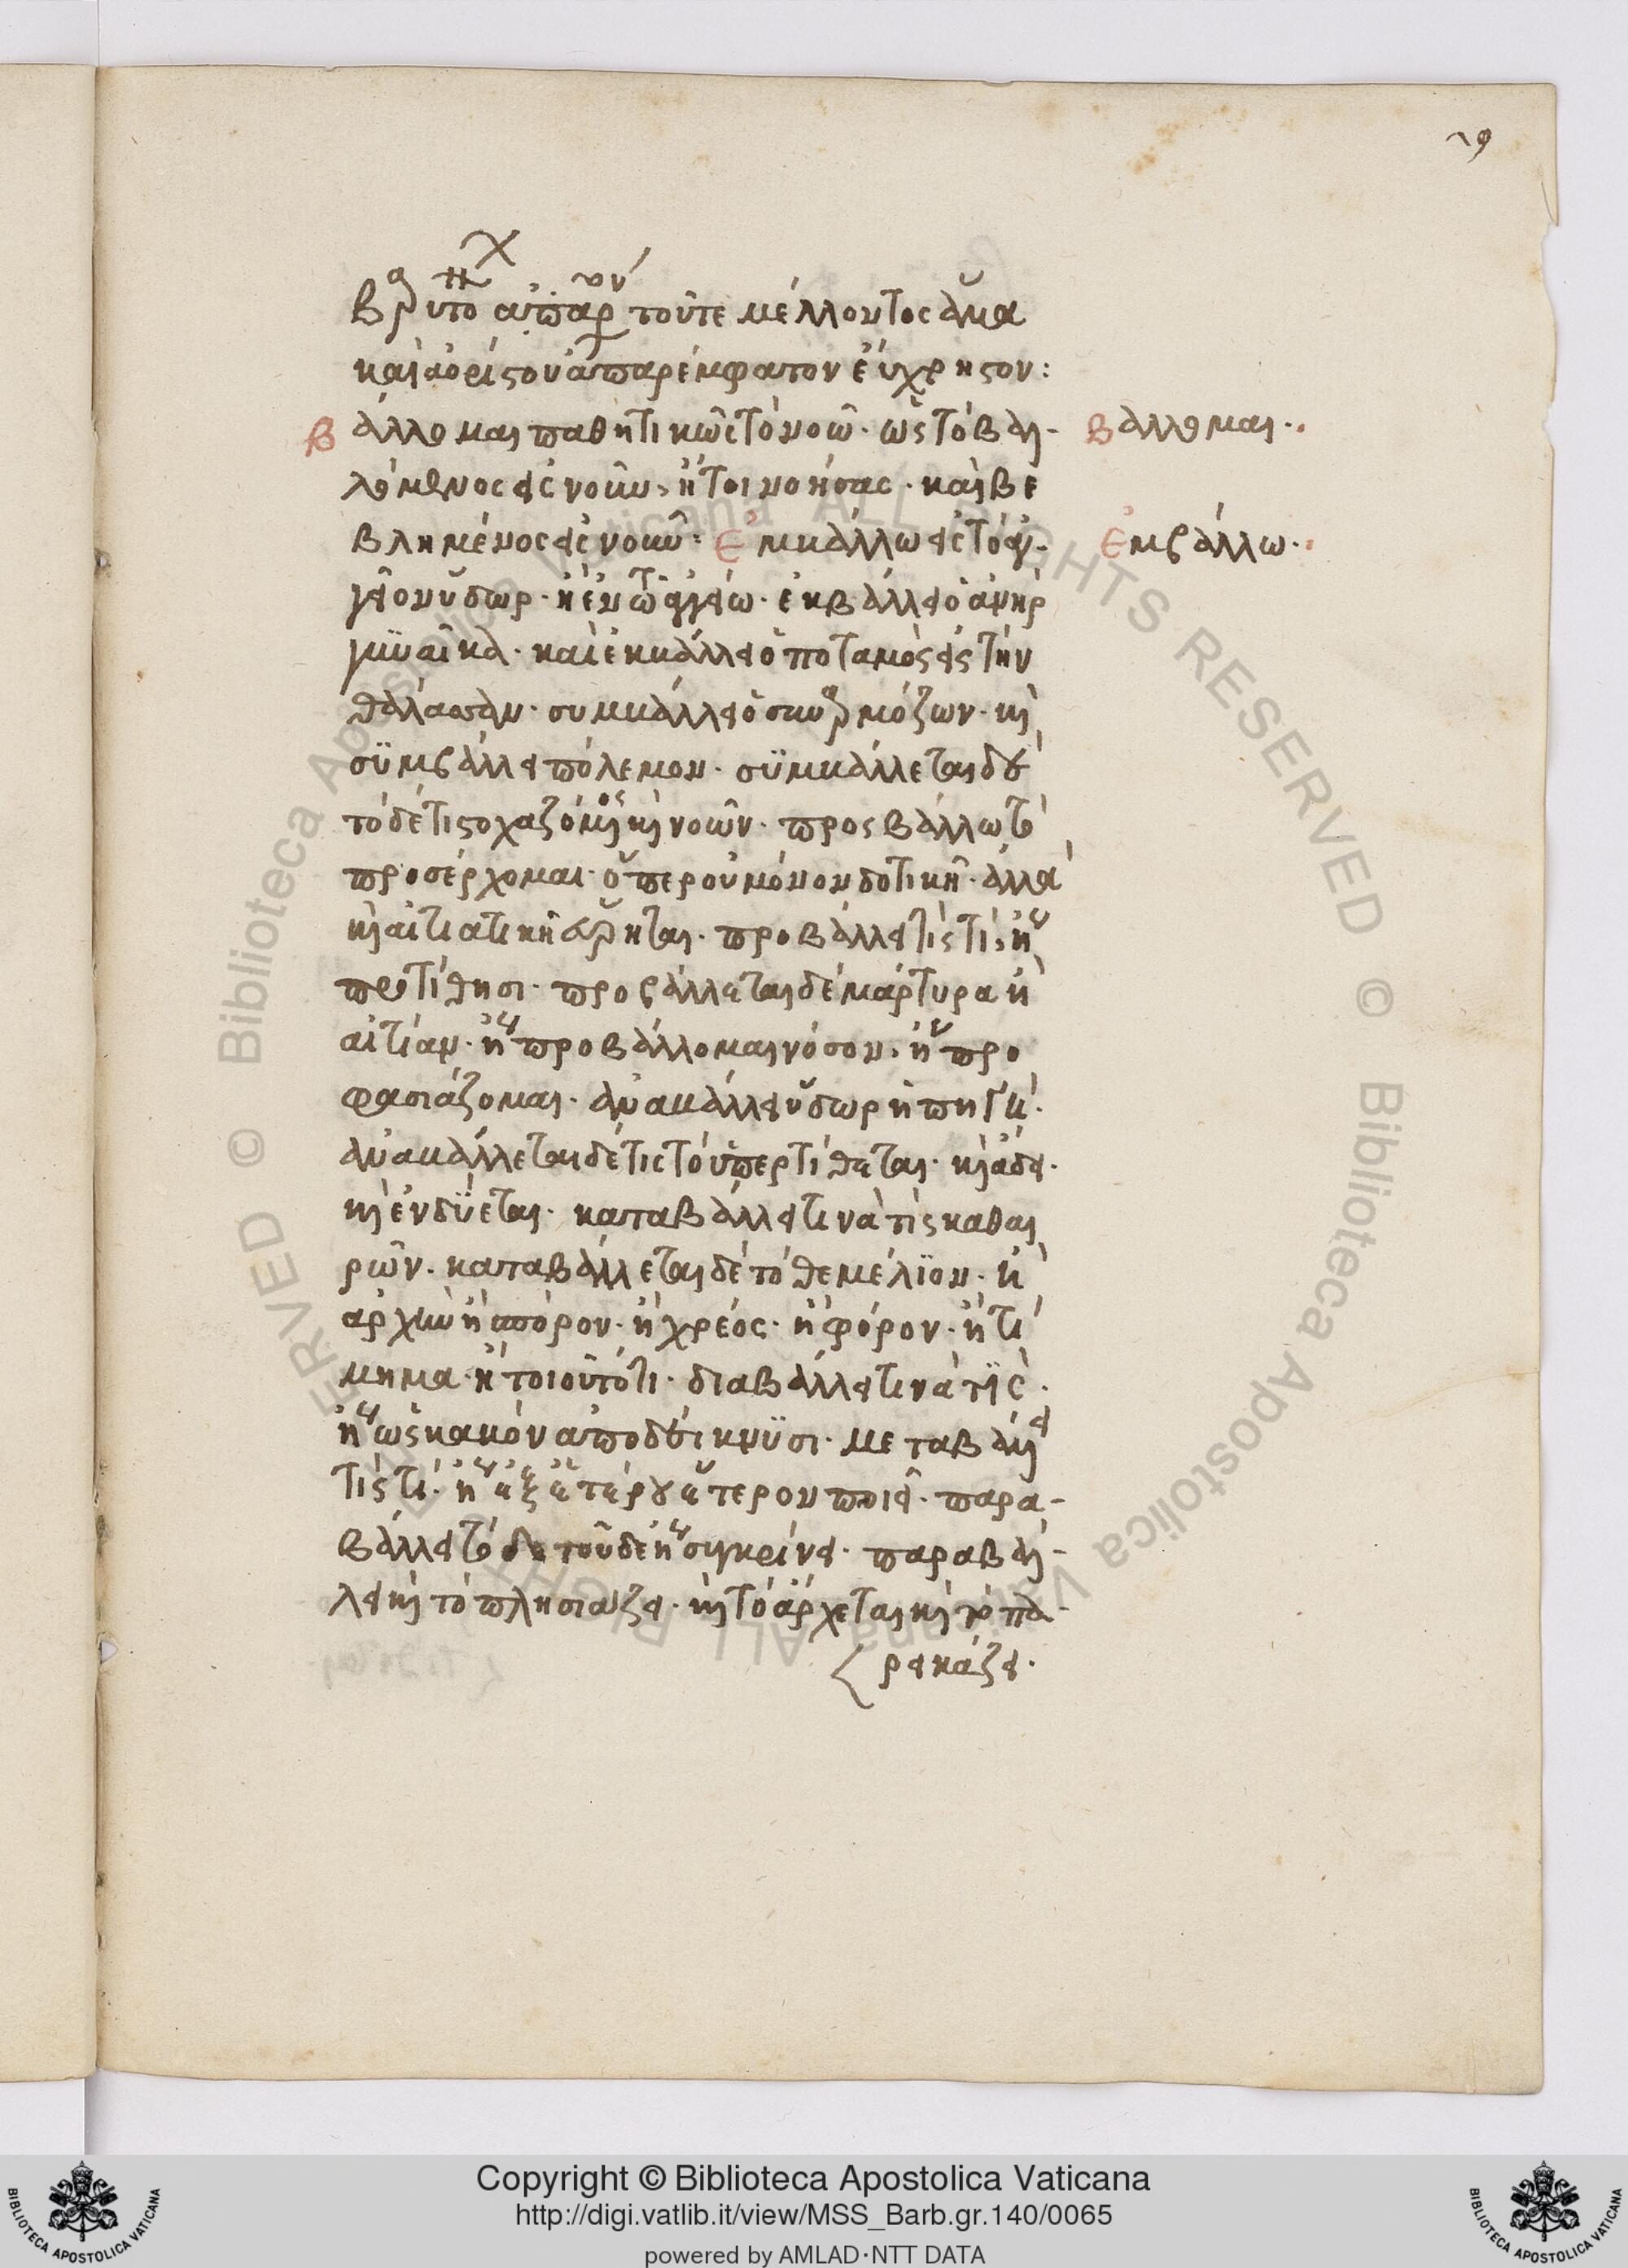 τοῦ τε μέλλοντος ἅμα
καὶ ἀορίστου ἀπαρέμφατον εὔχρηστον:
Βάλλομαι παθητικῶς τὸ νοῶ· ὡς τὸ βαλ-
λόμενος εἰς νοῦν, ἤτοι νοήσας· καὶ βε
βλημένος εἰς νοῦν: Ἐμβάλλω εἰς τὸ ἀγ-
γεῖον ὕδωρ· ἢ ἐν τῷ ἀγγείω· ἐκβάλλει ὁ ἀνὴρ
γυναῖκα· καὶ ἐκβάλλει ὁ ποταμὸς εἰς τὴν
θάλασσαν· συμβάλλει ὁ συναρμόζων· καὶ
συμβάλλει πόλεμον· συμβάλλεται δὲ
τόδέ τι στοχαζόμενος καὶ νοῶν· προσβάλλω τὸ
προσέρχομαι· ὅπερ οὐ μόνον δοτικῆ· ἀλλὰ
καὶ αἰτιατικῆ εὕρηται· προβάλλει τίς τί, ἤγουν
προτίθησι· προβάλλεται δὲ μάρτυρα ἢ
αἰτίαν· ἤγουν προβάλλομαι νόσον, ἤγουν προ
φασιάζομαι· ἀναβάλλει ὕδωρ ἡ πηγή·
ἀναβάλλεται δέ τις τὸ ὑπερτίθεται· καὶ ἄδει·
καὶ ἐνδύεται· καταβάλλει τινὰ τὶς καθαι
ρῶν· καταβάλλεται δὲ τὸ θεμέλιον· ἢ
ἀρχὴν ἢ σπόρον· ἢ χρέος· ἢ φόρον· ἢ τί
μημα ἢ τοιοῦτό τι· διαβάλλει τινὰ τὶς·
ἤγουν ὡς κακὸν ἀποδείκνυσι· μεταβάλλει
τίς τί· ἤγουν ἐξ ἑτέρου ἕτερον ποιεῖ· παρα-
βάλλει τόδε τοῦδε ἤγουν συγκρίνει· παραβάλ-
λει καὶ τὸ πλησιάζει· καὶ τὸ ἄρχεται καὶ τὸ πα-
ρεικάζει·
Βάλλομαι·
Ἐμβάλλω·
Copyright © Biblioteca Apostolica Vaticana
http://digi.vatlib.it/view/MSS_Barb.gr.140/0065
powered by AMLAD·NTT DATA
BIBLIOTECA APOSTOLICA VATICANA
BIBLIOTECA APOSTOLICA VATICANA